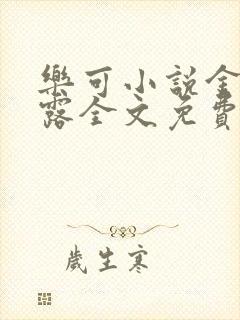 樂可小說金
露全文免費
歲生寒